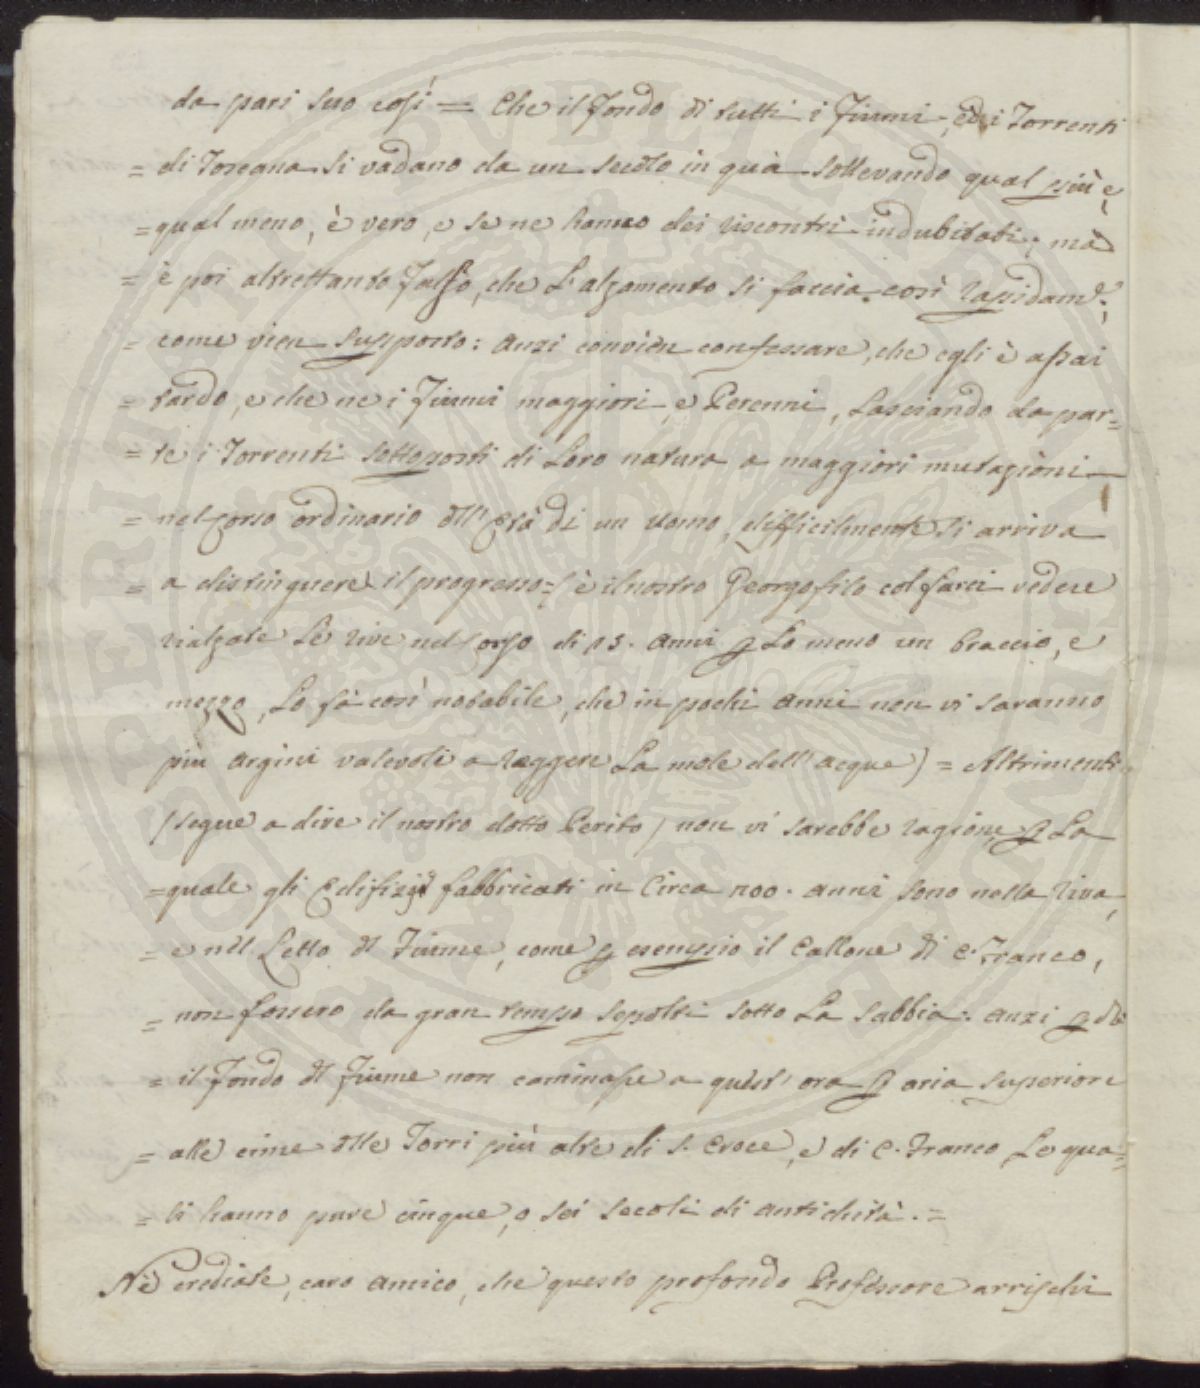 da pari suo così = Che il fondo di tutti i Fiumi, ed i Torrenti
= di Toscana si vadano da un secolo in quà sollevando qual più e
= qual meno, è vero, e se ne hanno dei riscontri indubitati; mà
= è poi altrettanto falso, che L'alzamento si faccia così rapidam.e,
= come vien supposto: anzi convien confessare, che egli è assai
= tardo, e che ne i Fiumi maggiori, e Perenni, Lasciando da par=
= te i Torrenti sottoposti di Loro natura a maggiori mutazioni
= nel corso ordinario dll' Età di un uomo, difficilmente si arriva
= a distinguere il progresso = ( è il nostro Georgofilo col farci vedere
rialzate Le rive nel corso di 15. anni p Lo meno un braccio, e
mezzo, Lo fà così notabile, che in pochi anni non vi saranno
più argini valevoli a reggere La mole dell' acque) = Altrimenti
(segue a dire il nostro dotto Perito) non vi sarebbe ragione, p La
= quale gli Edifizj fabbricati in Circa 200. anni sono nella riva,
= e nel Letto dl Fiume, come p esempio il Callone di C. Franco,
= non fossero da gran tempo sepolti sotto La sabbia: anzi p chè
= il fondo dl Fiume non caminasse a quest' ora p aria superiore
= alle cime dlle Torri più alte di S. Croce, e di C. Franco, Le qua=
= li hanno pure cinque, o sei secoli di antichità. =
Nè crediate, caro amico, che questo profondo Professore arrischi